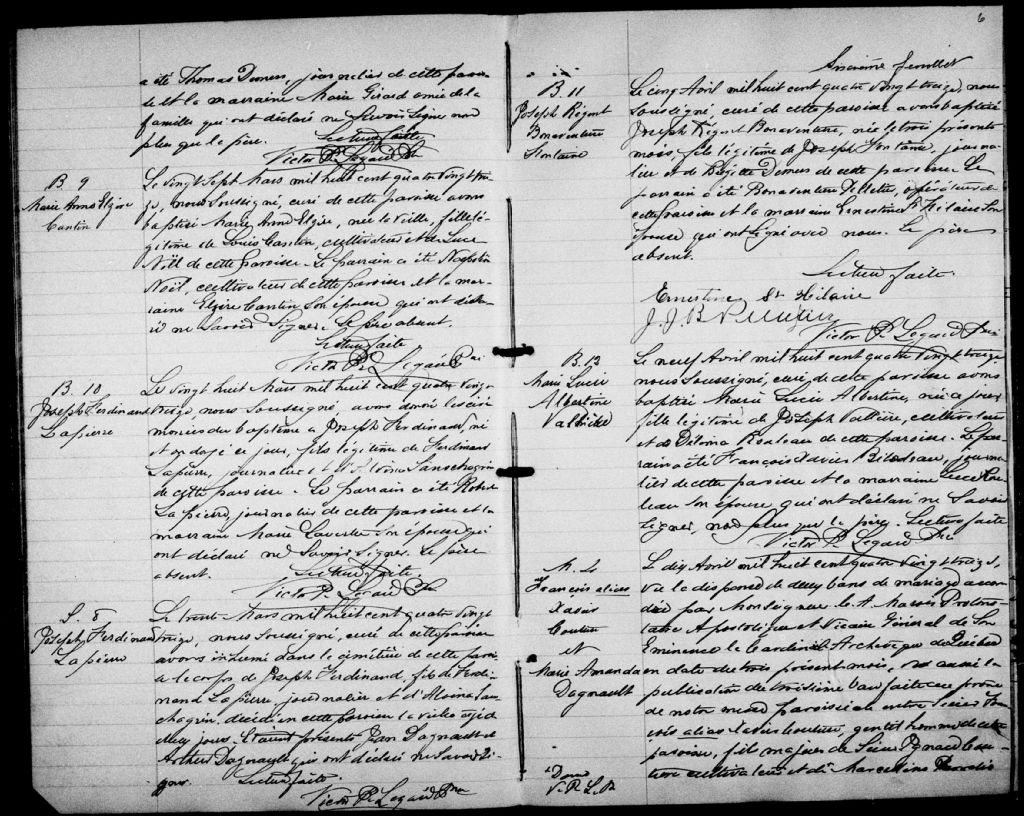 a été Thomas Demers, journalier de cette parois-
se et la marraine Marie Girard amie de la
famille qui ont déclaré ne savoir signer non
plus que le père. Lecture faite
Victor R. Legaré Ptre
B 9
Marie Anne Elzire
Cantin
Le vingt Sept Mars mil huit cent quatre vingt trei-
ze, nous soussigné, curé de cette paroisse avons
baptisé Marie Anne Elzire, née la veille, fille lé-
gitime de Louis Cantin, cultivateur et de Luce
Noël de cette paroisse. Le parrain a été
Noël, cultivateur de cette paroisse et la mar-
raine Elzire Cantin son épouse qui ont décla-
ré ne savoir signer. Le père absent.
Lecture faite
Victor R. Legaré Ptre
B. 10
Joseph Ferdinand
Lapierre
Le vingt huit Mars mil huit cent quatre vingt
treize, nous soussigné, avons donné les céré-
monies du baptême à Joseph Ferdinand, né
et ondoyé ce jour, fils légitime de Ferdinand
Lapierre, journalier et
de cette paroisse. Le parrain a été Robert
Lapierre, journalier de cette paroisse et la
marraine Marie son épouse qui
ont déclaré ne savoir signer. Le père
absent. Lecture faite
Victor R. Legaré Ptre
S. 8
Joseph Ferdinand
Lapierre
Le trente Mars mil huit cent quatre vingt
treize, nous soussigné, curé de cette paroisse
avons inhumé dans le cimétière de cette paroi-
le corps de Joseph Ferdinand, fils de Ferdi-
nand Lapierre, journalier et d'
décédé en cette paroisse la veille agé de
deux jours. Etaient présents Jean Dagnault et
Arthur Dagnault qui ont déclaré ne savoir si-
gner. Lecture faite.
Victor R. Legaré Ptre
6
feuillet
B. 11
Joseph Régent
Bonaventure
Fontaine
Le cinq Avril mil huit cent quatre vingt treize, nous
soussigné, curé de cette paroisse avons baptisé
Joseph Régent Bonaventure, né le trois présent
mois, fils légitime de Joseph Fontaine, journa-
lier et de Demers de cette paroisse. Le
parrain a été Bonaventure Pelletier, opérateur de
cette paroisse et la marraine Ernestine St Hilaire son
épouse qui ont signé avec nous. Le père
absent.
Lecture faite.
Ernestine St Hilaire
J. J. B Pelletier
Victor R. Legaré Ptre
B. 12
Marie Lucie
Albertine
Vallière
Le neuf Avril mil huit cent quatre vingt treize
nous soussigné, curé de cette paroisse avons
baptisé Marie Lucie Albertine, née ce jour
fille légitime de Joseph Vallière, cultivateur
et de Rouleau de cette paroisse. Le par-
rain a été François Xavier Bilodeau, journa-
lier de cette paroisse et la marraine Luce Rou-
leau son épouse, qui ont déclaré ne savoir
signer, non plus que le père. Lecture faite
Victor R. Legaré Ptre
François alias
Xavier
Couture
et
Marie Amanda
Dagnault
Le dix Avril mil huit cent quatre vingt treize,
vu la dispense de deux bans de mariage accor-
dée par Monseigneur C. A. Marois Protono-
taire Apostolique et Vicaire Général de Son
Eminence le Cardinal Archevêque de Québec
en date du trois présent mois, vu aussi la
publication du troisième ban faite au prône
de notre messe paroissiale entre Sieur Fran-
çois alias Xavier Couture, gentilhomme de cette
paroisse, fils majeur de Sieur Couture
cultivateur et de Marcelline
V. R. L. P.